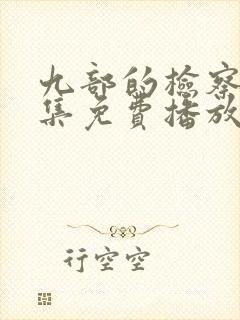 九部的检察
集免费播放
行空空